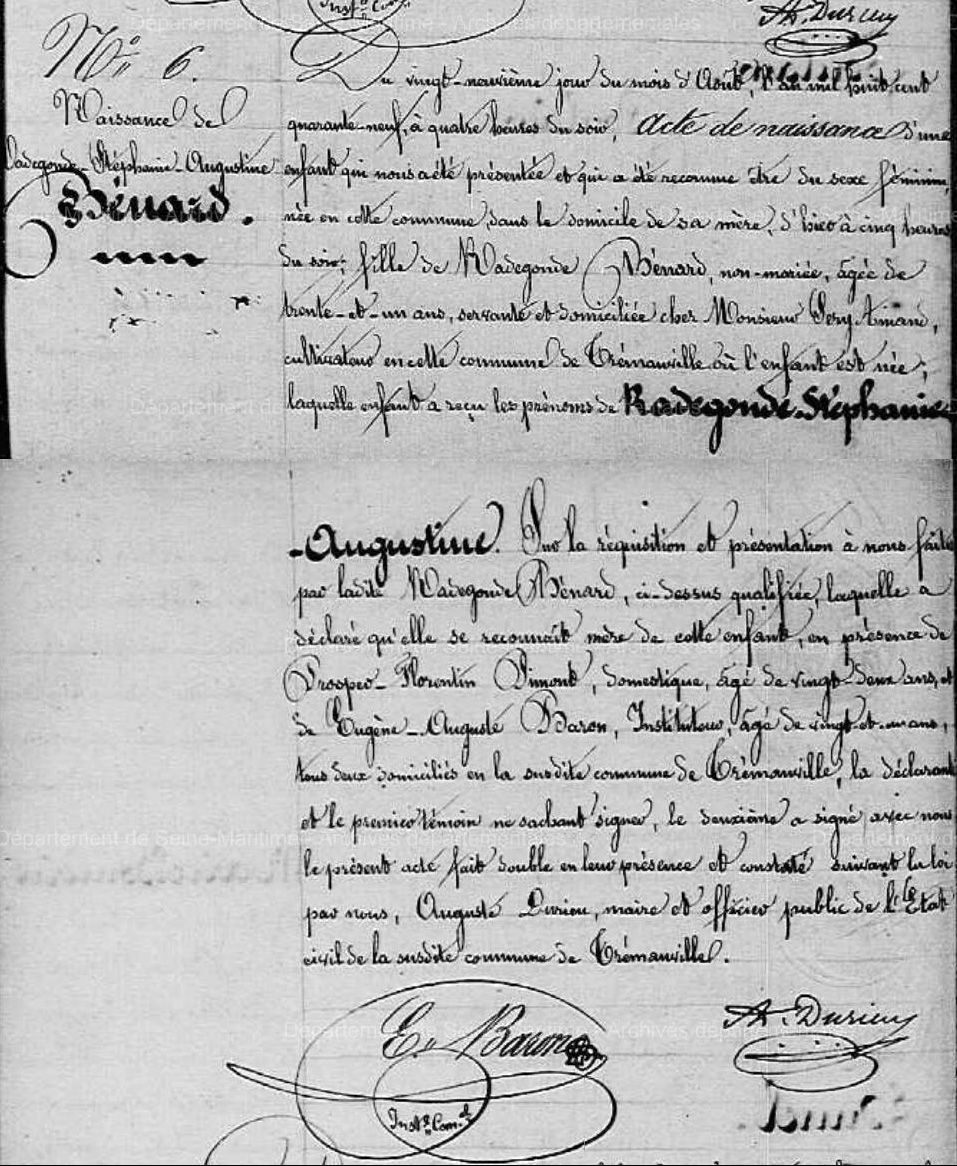 Inst.r Com.l
A. Durieu
N.o 6.
Naissance de
Radegonde-Stéphanie-Augustine
Bénard.
Du vingt-neuvième jour du mois d'Août, l'an mil huit cent
quarante-neuf, à quatre heures du soir, acte de naissance d'une
enfant qui nous a été présentée et qui a été reconnue être du sexe féminin,
née en cette commune, dans le domicile de sa mère, d'hier à cinq heures
du soir; fille de Radegonde Bénard, non-mariée, âgée de
trente-et-un ans, servante et domiciliée chez Monsieur Amand,
cultivateur en cette commune de Trémauville où l'enfant est née;
laquelle enfant a reçu les prénoms de Radegonde-Stéphanie
-Augustine. Sur la réquisition et présentation à nous faite
par ladite Radegonde Bénard, ci-dessus qualifiée, laquelle a
déclaré qu'elle se reconnaît mère de cette enfant, en présence de
Prosper-Florentin Simont, domestique, âgé de vingt-deux ans, et
de Eugène-Auguste Baron, Instituteur, âgé de vingt-et-un ans,
tous deux domiciliés en la susdite commune de Trémauville, la déclarant
et le premier témoin ne sachant signer, le deuxième a signé avec nous
le présent acte fait double en leur présence et constaté suivant la loi
par nous, Auguste Durieu, maire et officier public de l'Etat
civil de la susdite commune de Trémauville.
E. Baron
A. Durieu
Inst.r Com.l